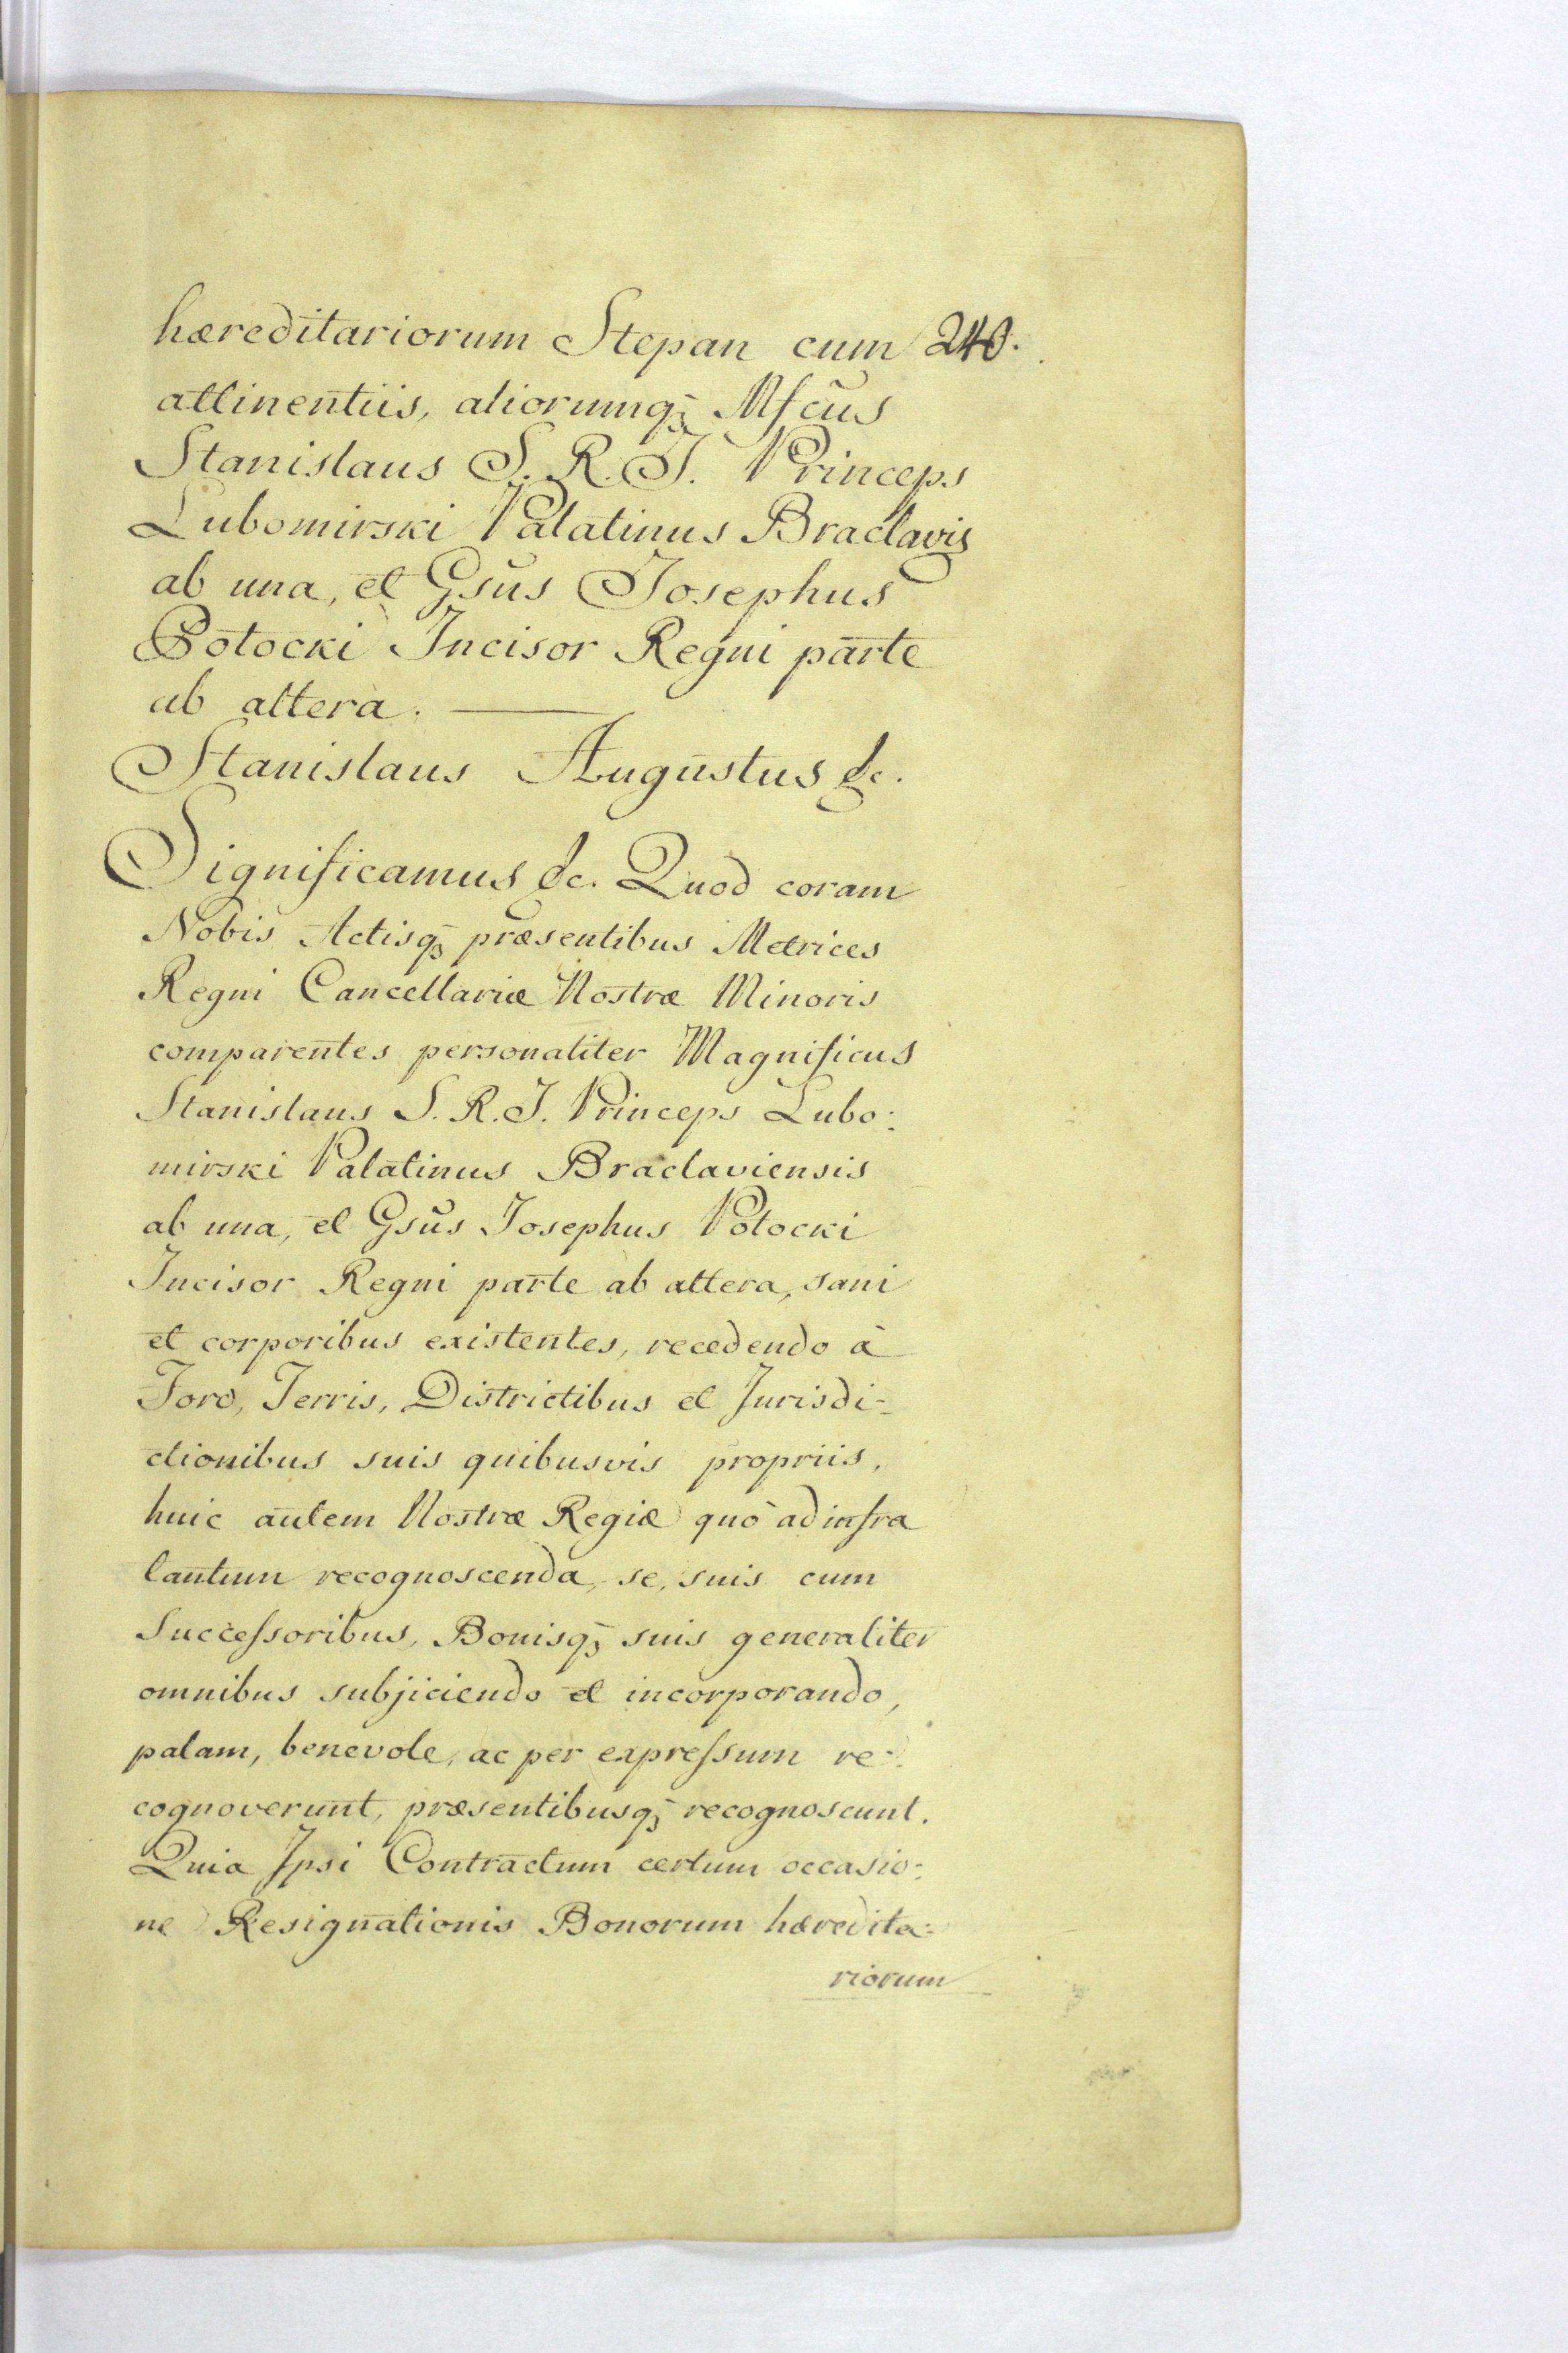 hæreditariorum Stepan cum 240.
attinentiis, aliorumq; Mfcus
Stanislaus S. R. J. Princeps
Lubomirski Palatinus Braclavis
ab una, et Gsus Josephus
Potocki Incisor Regni parte
ab altera.
Stanislaus Augustus &c.
Significamus &c. Quod coram
Nobis Actisq; præsentibus Metrices
Regni Cancellariæ Nostræ Minoris
comparentes personaliter Magnificus
Stanislaus S. R. J. Princeps Lubo:
mirski Palatinus Braclaviensis
ab una, et Gsus Josephus Potocki
Incisor Regni parte ab altera, sani
et corporibus existentes, recedendo à
Foro, Terris, Districtibus et Jurisdi-
ctionibus suis quibusvis propriis,
huic autem Nostræ Regiæ quò ad infra
tantum recognoscenda, se, suis cum
Successoribus, Bonisq; suis generaliter
omnibus subjiciendo et incorporando,
palam, benevole, ac per expressum re-
cognoverunt, præsentibusq; recognoscunt.
Quia Ipsi Contractum certum occasio:
ne Resignationis Bonorum hæredita:
riorum